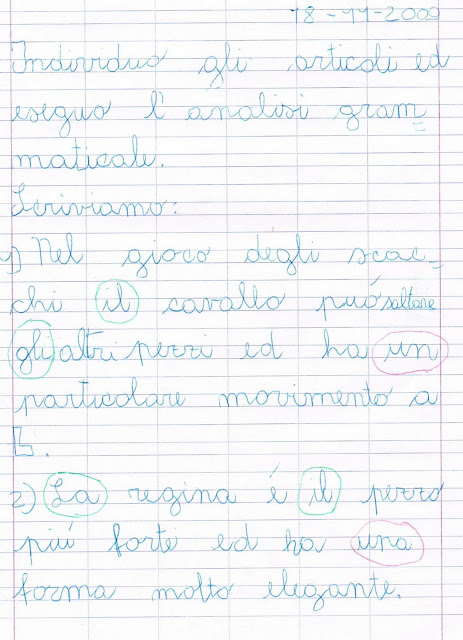 18-11-2009
Individuo gli articoli ed
eseguo l'analisi gram
maticale.
Scriviamo:
1) Nel gioco degli scac-
chi il cavallo può saltare
gli altri pezzi ed ha un
particolare movimento a
L.
2) La regina é il pezzo
piú forte ed ha una
forma molto elegante.